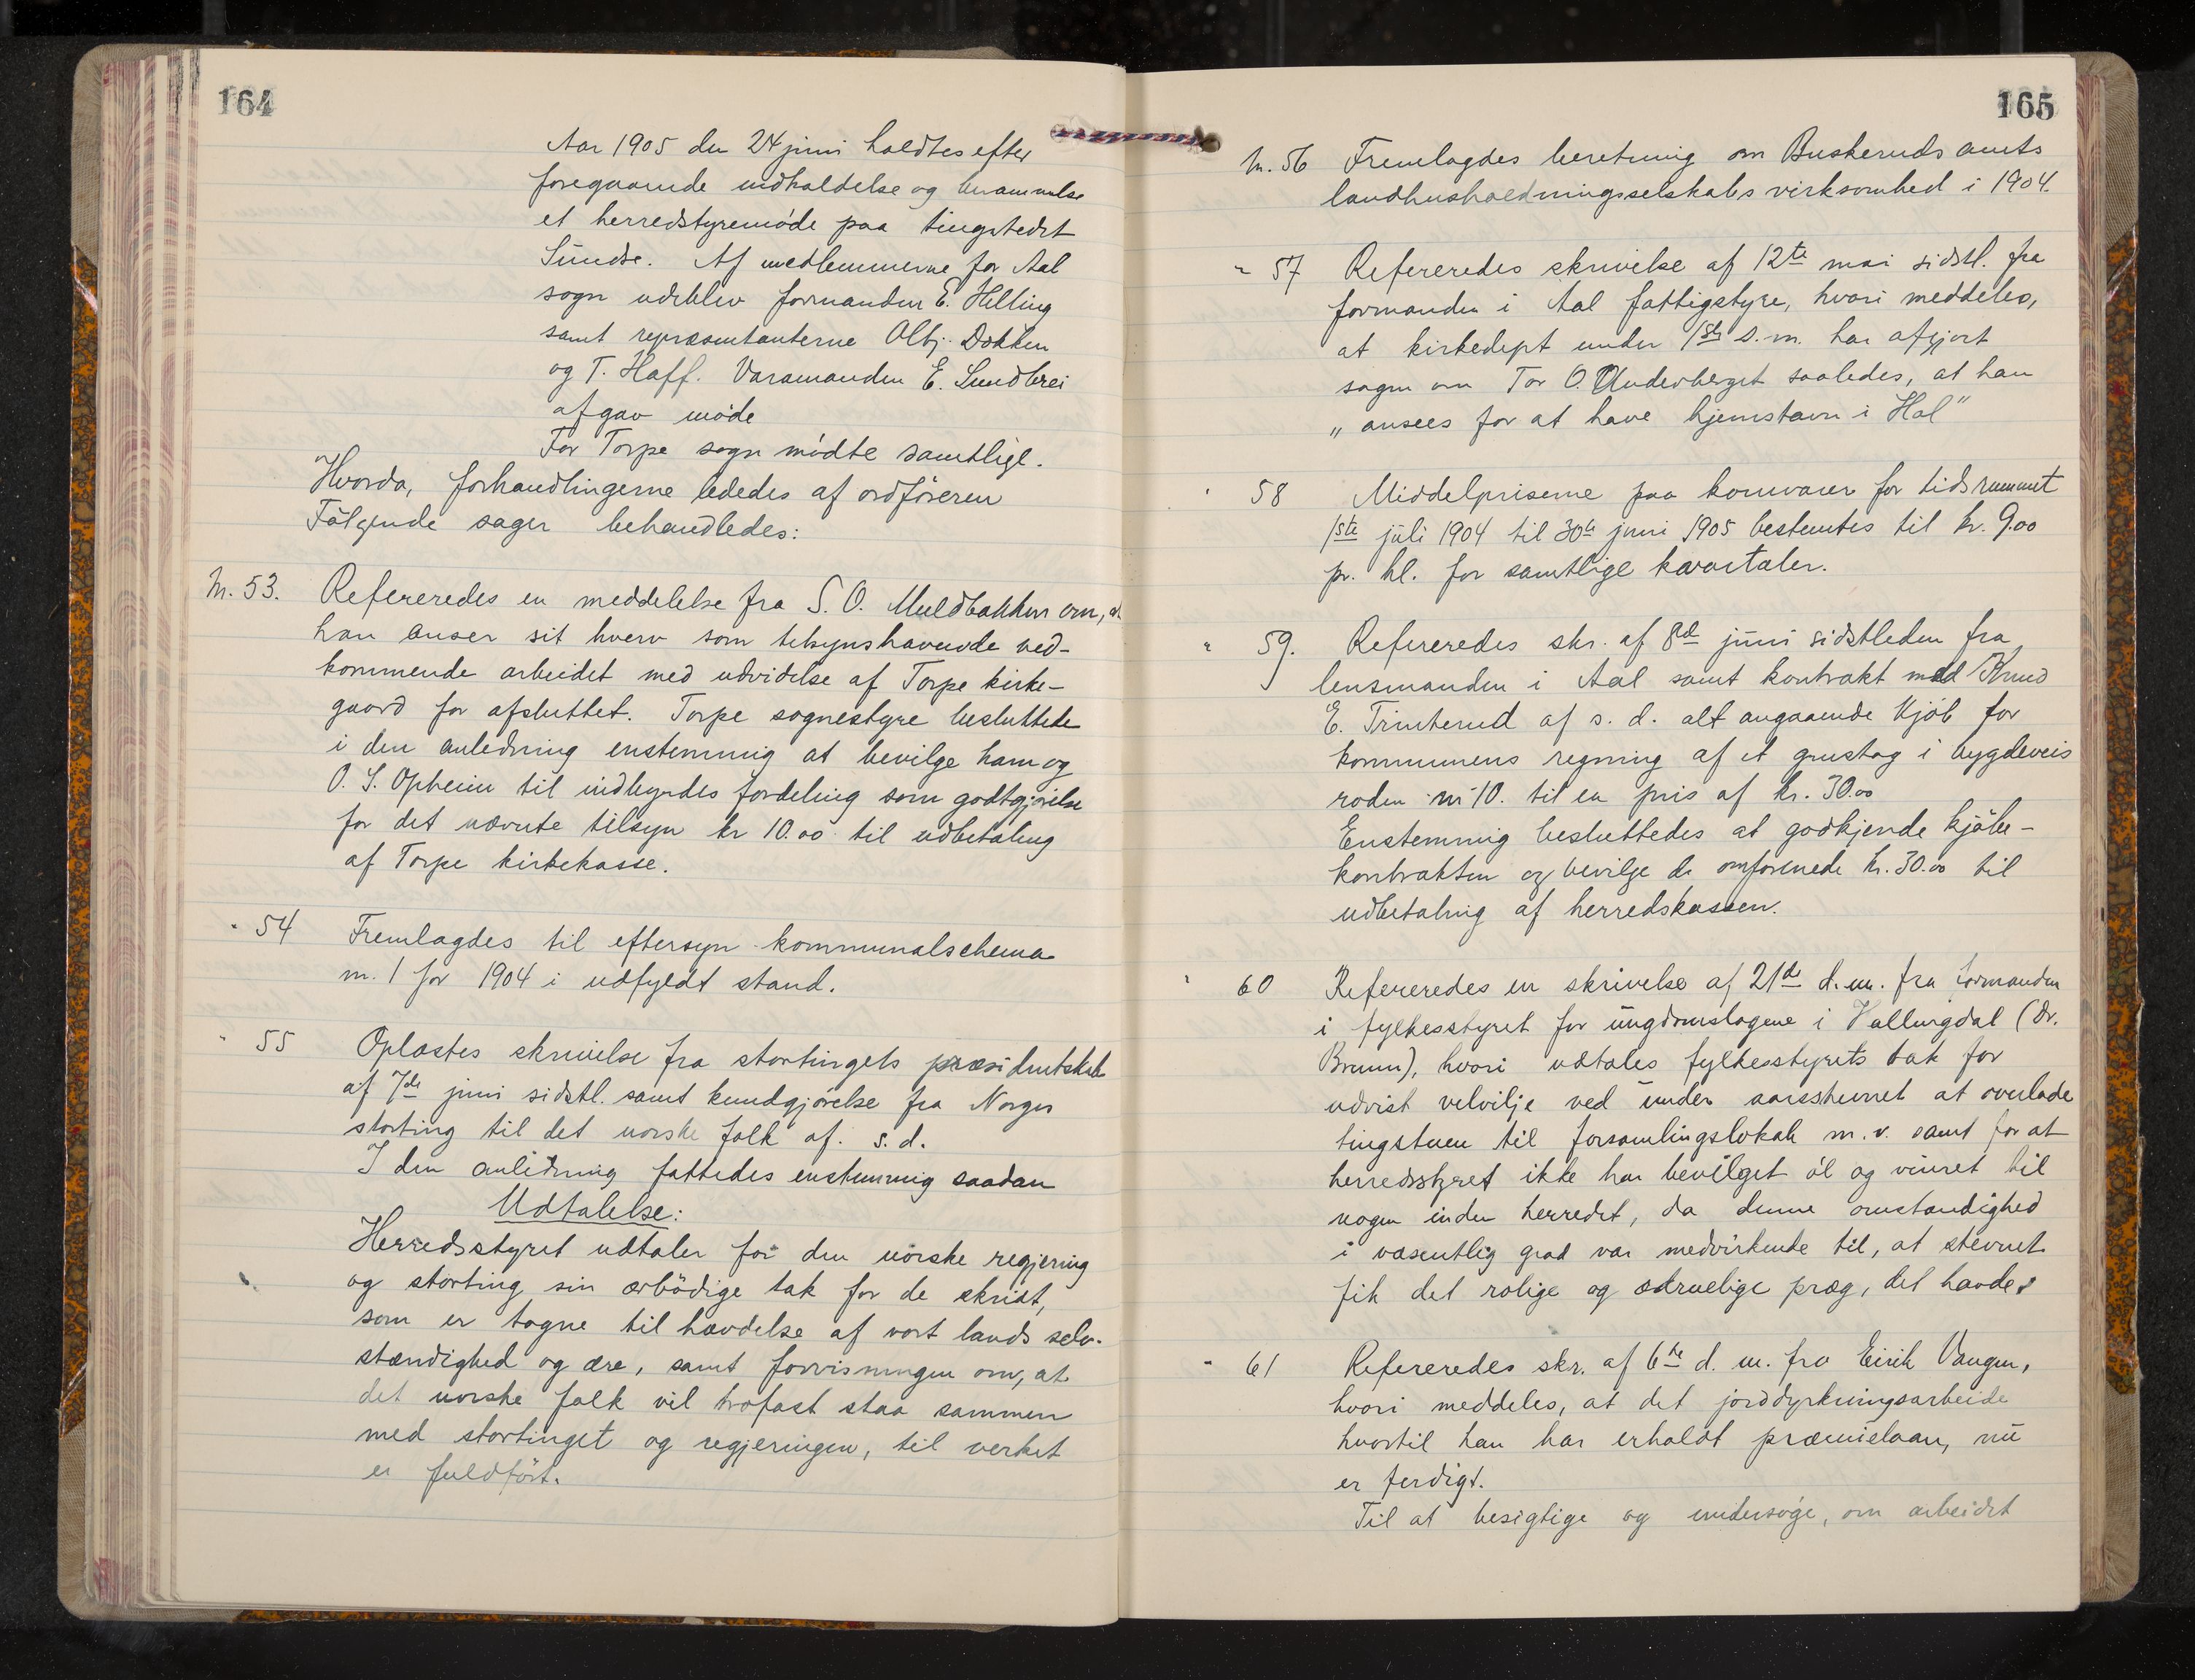 164
Aar 1905 den 24 juni holdtes efter
foregaaende indkaldelse og berammelse
et herredstyremöde paa tingstedet
Sundre. Af medlemmerne for Aal
sogn udeblev formanden E. Helling
samt repræsentanterne Olbj. Dokken
og T. Haff. Varamanden E. Sundbrei
afgav möde
For Torpe sogn mödte samtlige.
Hvorda, forhandlingerne lededes af ordföreren
Fölgende sager behandledes:
N. 53. Refereredes en meddelelse fra S. O. Muldbakken om, at
han anser sit hverv som tilsynshavende ved-
kommende arbeidet med udvidelse af Torpe kirke-
gaard for afsluttet. Torpe sognestyre besluttede
i den anledning enstemmig at bevilge ham og
O. S. Opheim til indbyrdes fordeling som godtgjörelse
for det nævnte tilsyn kr 10.00 til udbetaling
af Torpe kirkekasse.
" 54 Fremlagdes til eftersyn kommunalschema
nr. 1 for 1904 i udfyldt stand.
" 55 Oplæstes skrivelse fra stortingets præsidentskab
af 7de juni sidstl. samt kundgjörelse fra Norges
storting til det norske folk af s. d.
I den anledning fattedes enstemmig saadan
Udtalelse:
Herredsstyret udtaler for den norske regjering
og storting sin ærbödige tak for de skridt,
som er tagne til hævdelse af vort lands selv-
stændighed og ære, samt forvisningen om, at
det norske folk vil trofast staa sammen
med stortinget og regjeringen, til verket
er fuldfört.
165
N. 56 Fremlagdes beretning om Buskeruds amts
landhusholdningsselskabs virksomhed i 1904.
" 57 Refereredes skrivelse af 12te mai sidstl. fra
formanden i Aal fattigstyre, hvori meddeles,
at kirkedept under 1ste s. m. har afgjort
sagen om Tor O. Underberget saaledes, at han
„ansees for at have hjemstavn i Hol"
" 58 Middelpriserne paa kornvarer for tidsrummet
1ste juli 1904 til 30te juni 1905 bestemtes til kr. 9.00
pr. hl. for samtlige kvartaler.
" 59. Refereredes skr. af 8de juni sidstleden fra
lensmanden i Aal samt kontrakt med Knud
E. Trinterud af s. d. alt angaaende kjöb for
kommunens regning af et grustag i bygdeveis
roden nr 10. til en pris af kr. 30.00
Enstemmig besluttedes at godkjende kjöbe-
kontrakten og bevilge de omforenede kr. 30.00 til
udbetaling af herredskassen.
" 60 Refereredes en skrivelse af 21de d. m. fra formanden
i fylkesstyret for ungdomslagene i Hallingdal (dr.
Bruun), hvori udtales fylkesstyrets tak for
udvist velvilje ved under aarsstevnet at overlade
tingstuen til forsamlingslokale m. v. samt for at
herredsstyret ikke har bevilget öl og vinret til
nogen inden herredet, da denne omstændighed
i væsentlig grad var medvirkende til, at stevnet
fik det rolige og ædruelige præg, det havde.
" 61 Refereredes skr. af 6te d. m. fra Eirik Vangen,
hvori meddeles, at det jorddyrkningsarbeide
hvortil han har erholdt præmielaan, nu
er ferdigt.
Til at besigtige og undersöge, om arbeidet